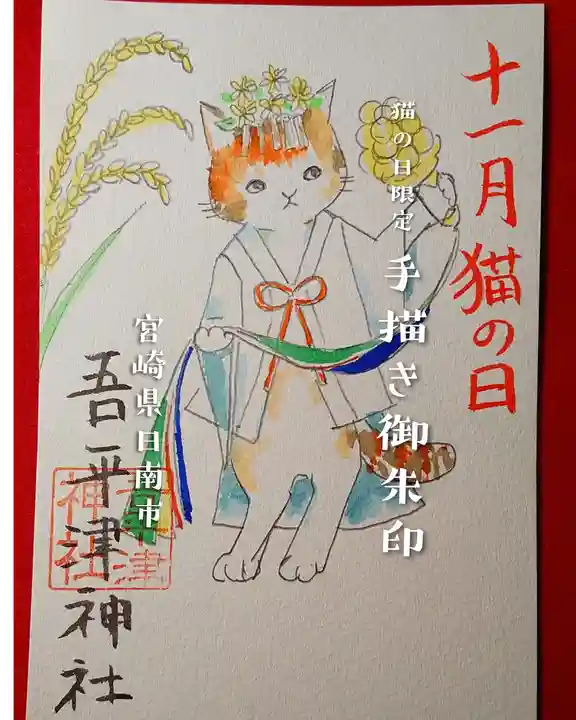 十一月猫の日
猫の日限定
手描き御朱印
宮崎県日南市
吾平津神社
神社
津